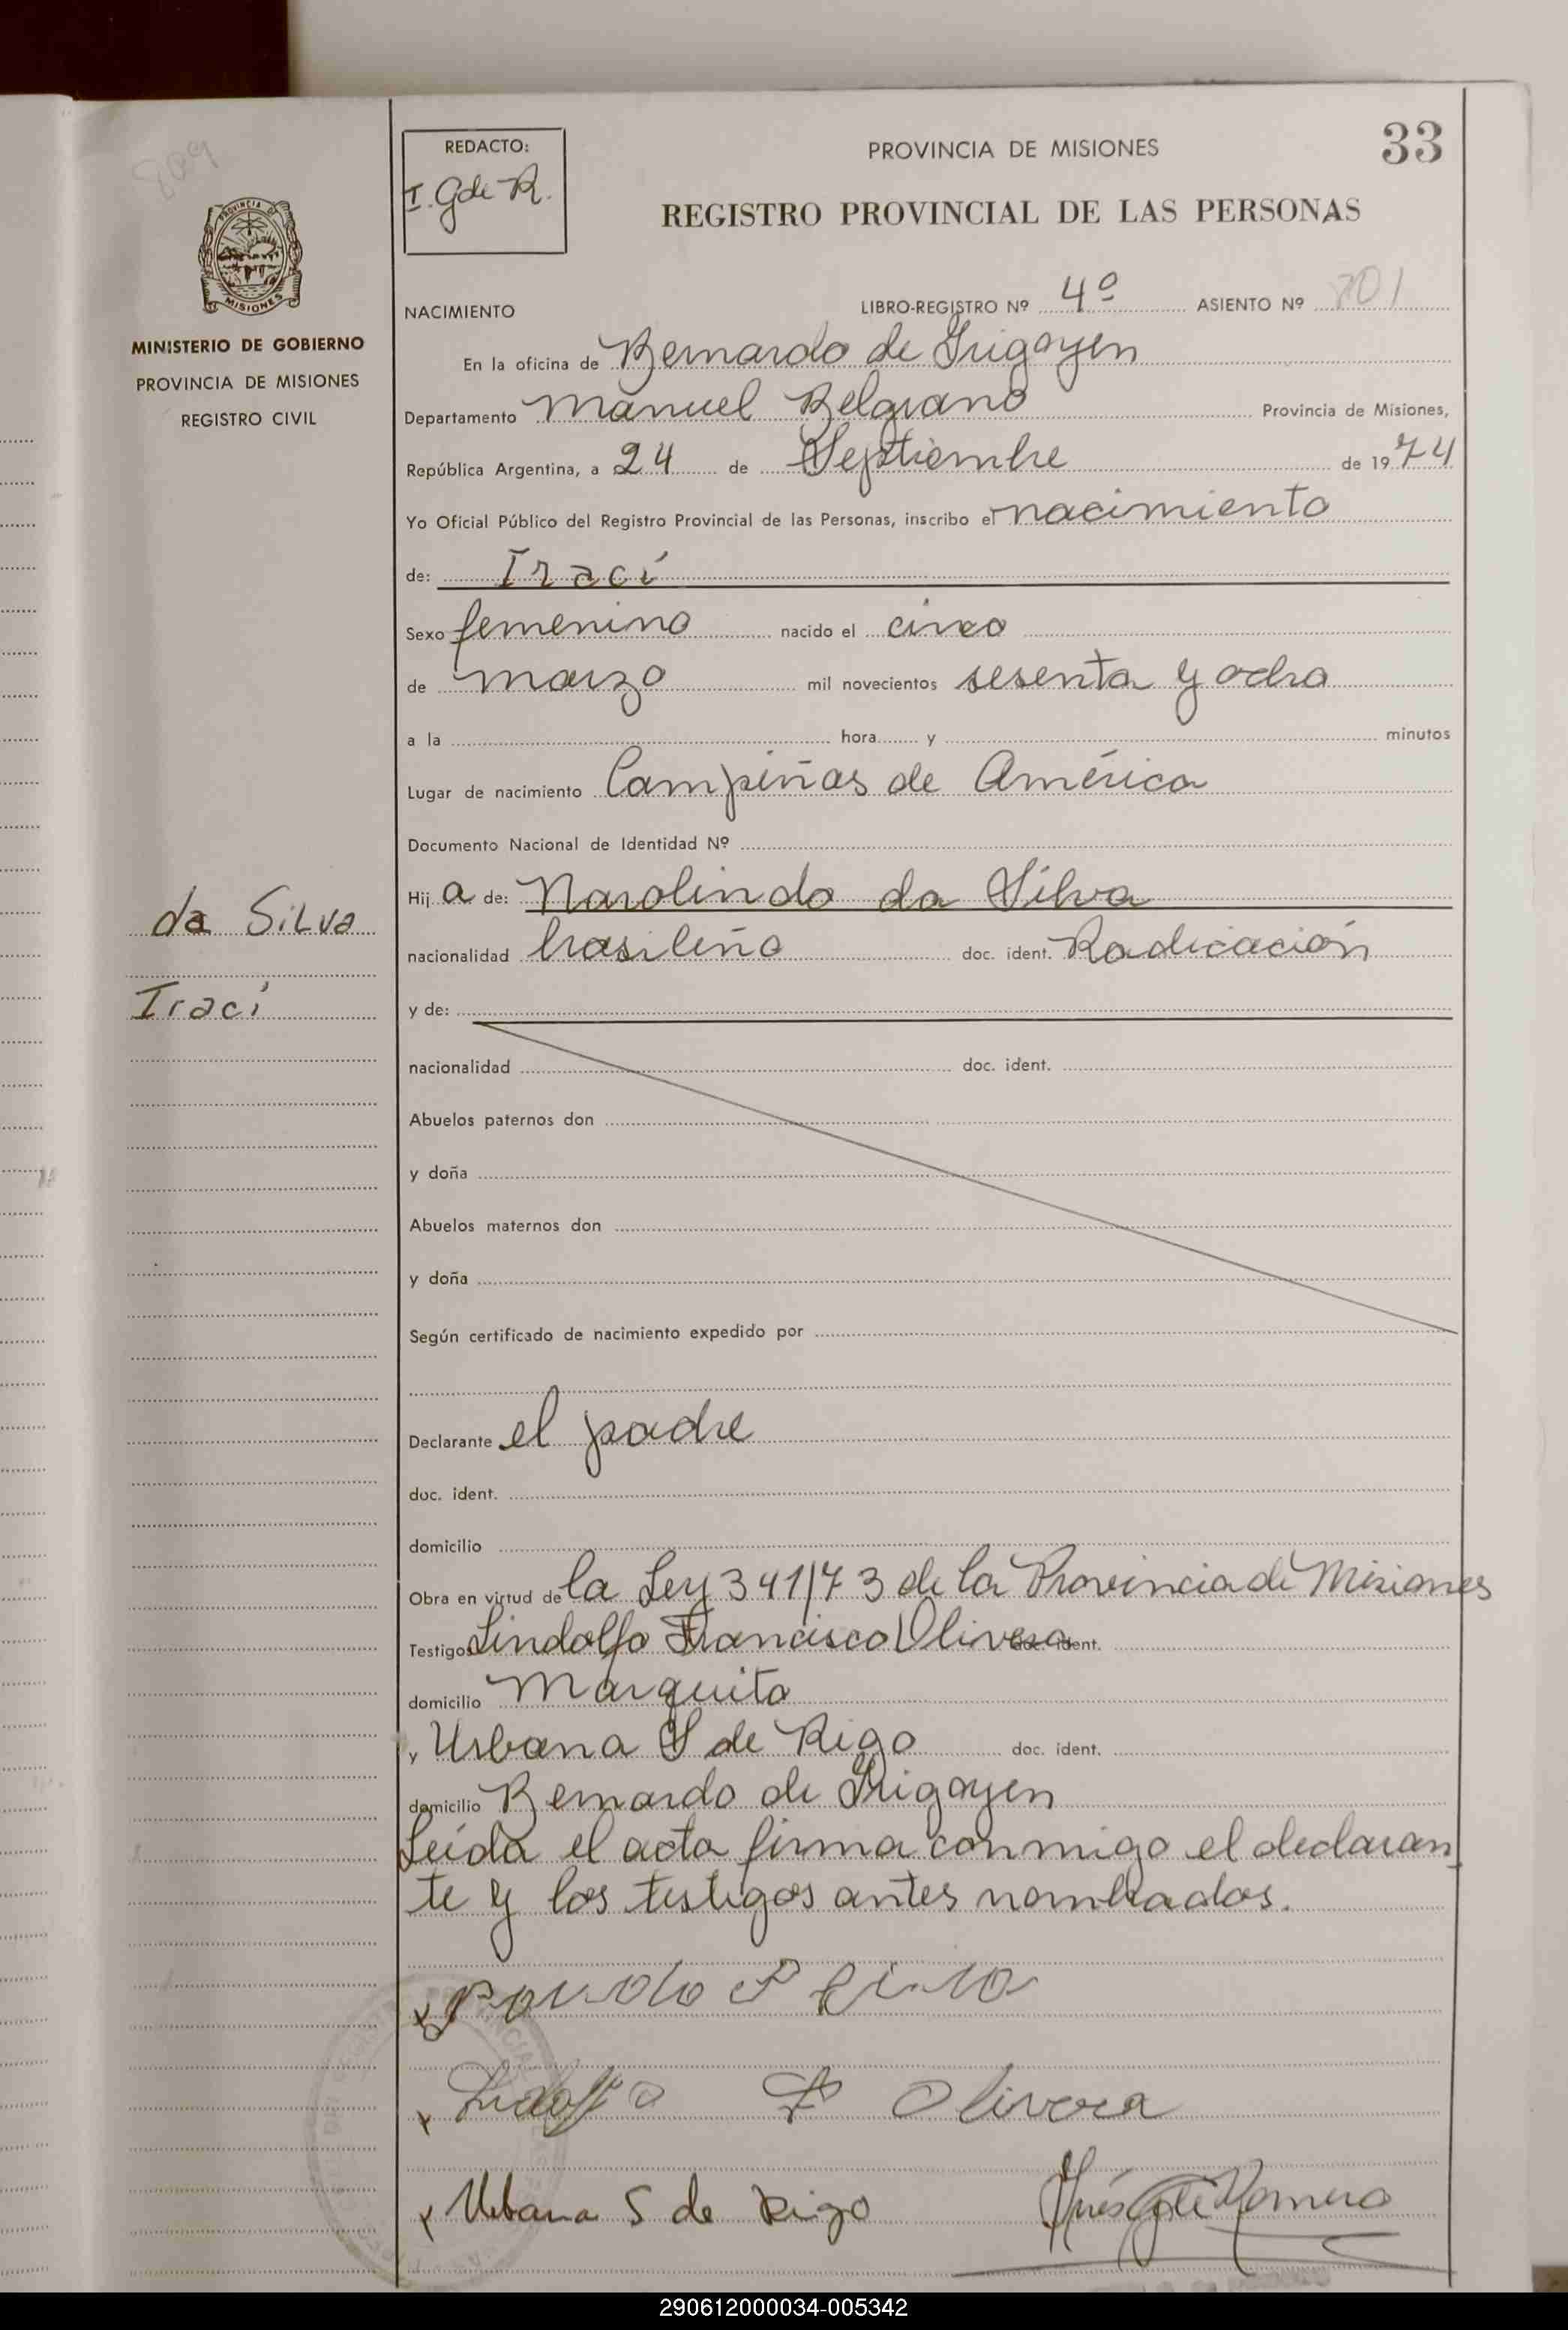 809
REDACTO:
I. G de R.
PROVINCIA DE MISIONES
33
REGISTRO PROVINCIAL DE LAS PERSONAS
PROVINCIA DE
MISIONES
MINISTERIO DE GOBIERNO
PROVINCIA DE MISIONES
REGISTRO CIVIL
NACIMIENTO LIBRO-REGISTRO Nº 4º ASIENTO Nº 801
En la oficina de Bernardo de Irigoyen
Departamento Manuel Belgrano Provincia de Misiones,
República Argentina, a 24 de Septiembre de 1974
Yo Oficial Público del Registro Provincial de las Personas, inscribo el nacimiento
de: Iraci
Sexo femenino nacido el cinco
de marzo mil novecientos sesenta y ocho
a la hora y minutos
Lugar de nacimiento Campiñas de América
Documento Nacional de Identidad Nº
Hij a de: Narolindo da Silva
da Silva
nacionalidad brasileño doc. ident. Radicación
Iraci
y de:
nacionalidad doc. ident.
Abuelos paternos don
y doña
Abuelos maternos don
y doña
Según certificado de nacimiento expedido por
Declarante el padre
doc. ident.
domicilio
Obra en virtud de la Ley 341/73 de la Provincia de Misiones
Testigos Lindolfo Francisco Olivera doc. ident.
domicilio Marquita
y Urbana S de Rigo doc. ident.
domicilio Bernardo de Irigoyen
Leída el acta firma conmigo el declaran-
te y los testigos antes nombrados.
F Olivera
Urbana S de Rigo Inés G de Romero
290612000034-005342